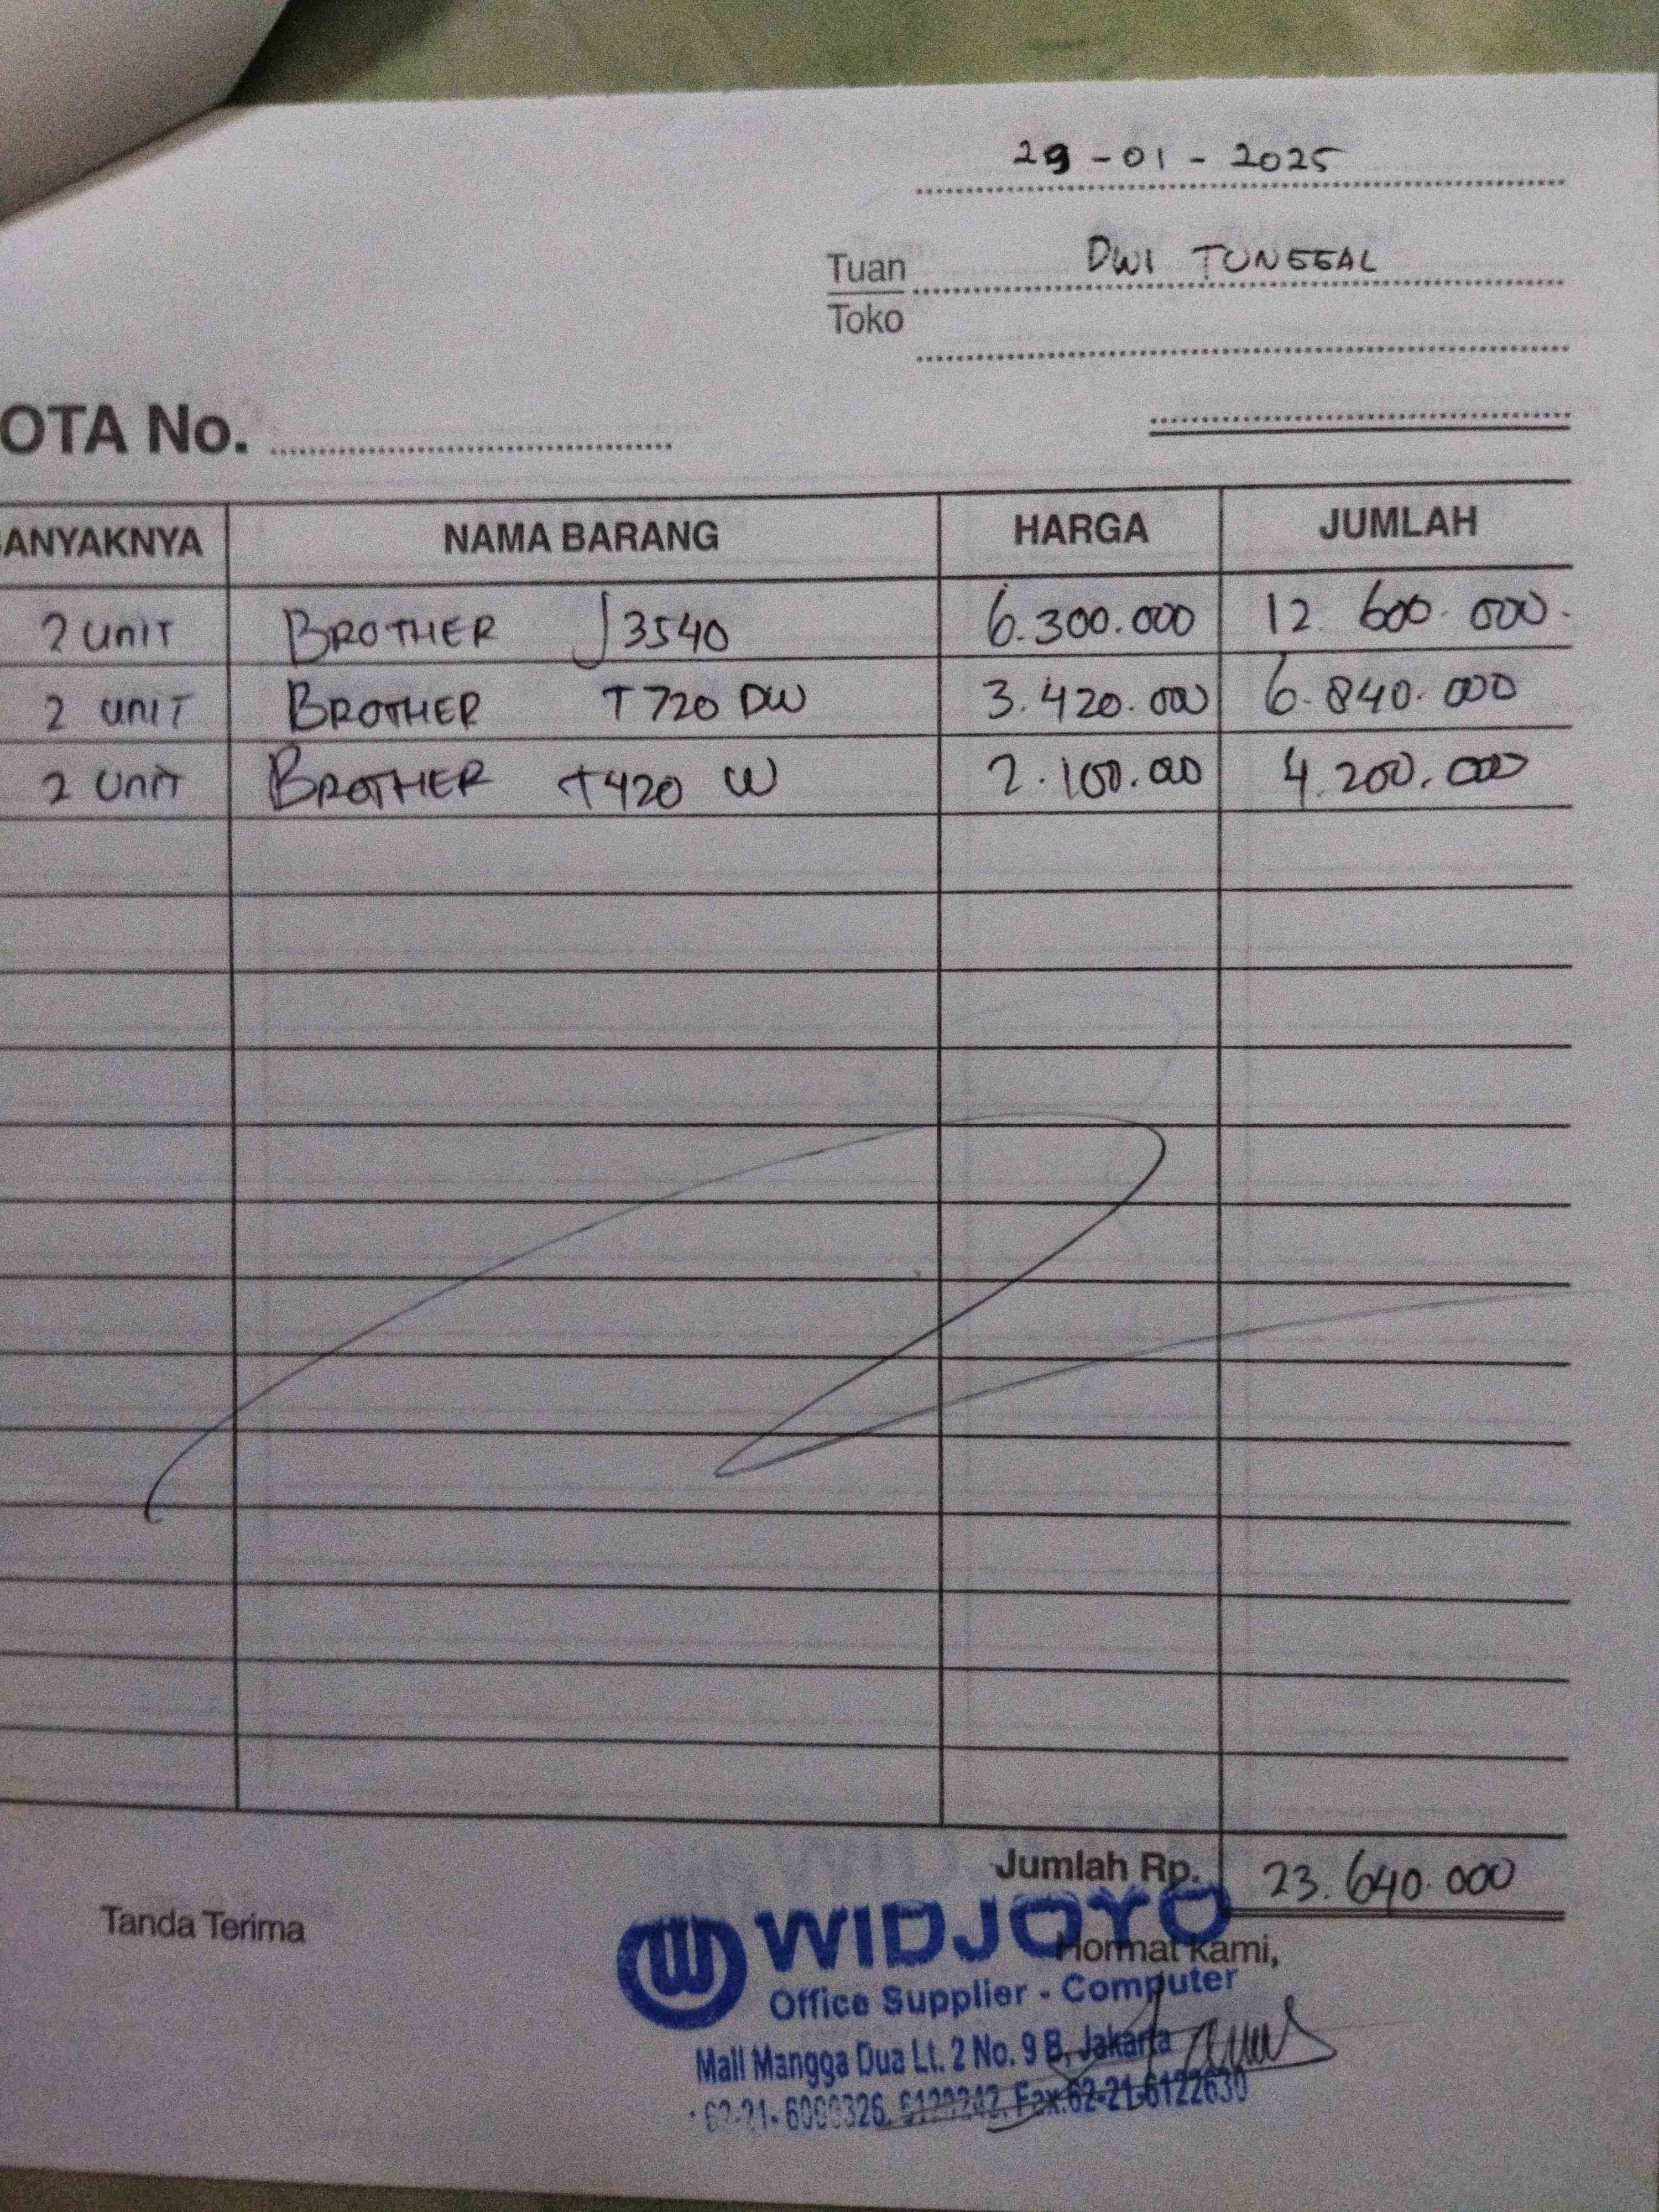 29 - 01 - 2025
Tuan DWI TUNGGAL
Toko
OTA No.
ANYAKNYA NAMA BARANG HARGA JUMLAH
2 UNIT BROTHER J3540 6.300.000 12.600.000.
2 UNIT BROTHER T720 DW 3.420.000 6.840.000
2 UNIT BROTHER T420 W 2.100.000 4.200.000
Jumlah Rp. 23.640.000
Tanda Terima
Hormat kami,
WIDJOYO
Office Supplier - Computer
Mall Mangga Dua Lt. 2 No. 9 B, Jakarta
62-21- 6000326, Fax.62-21-6122630